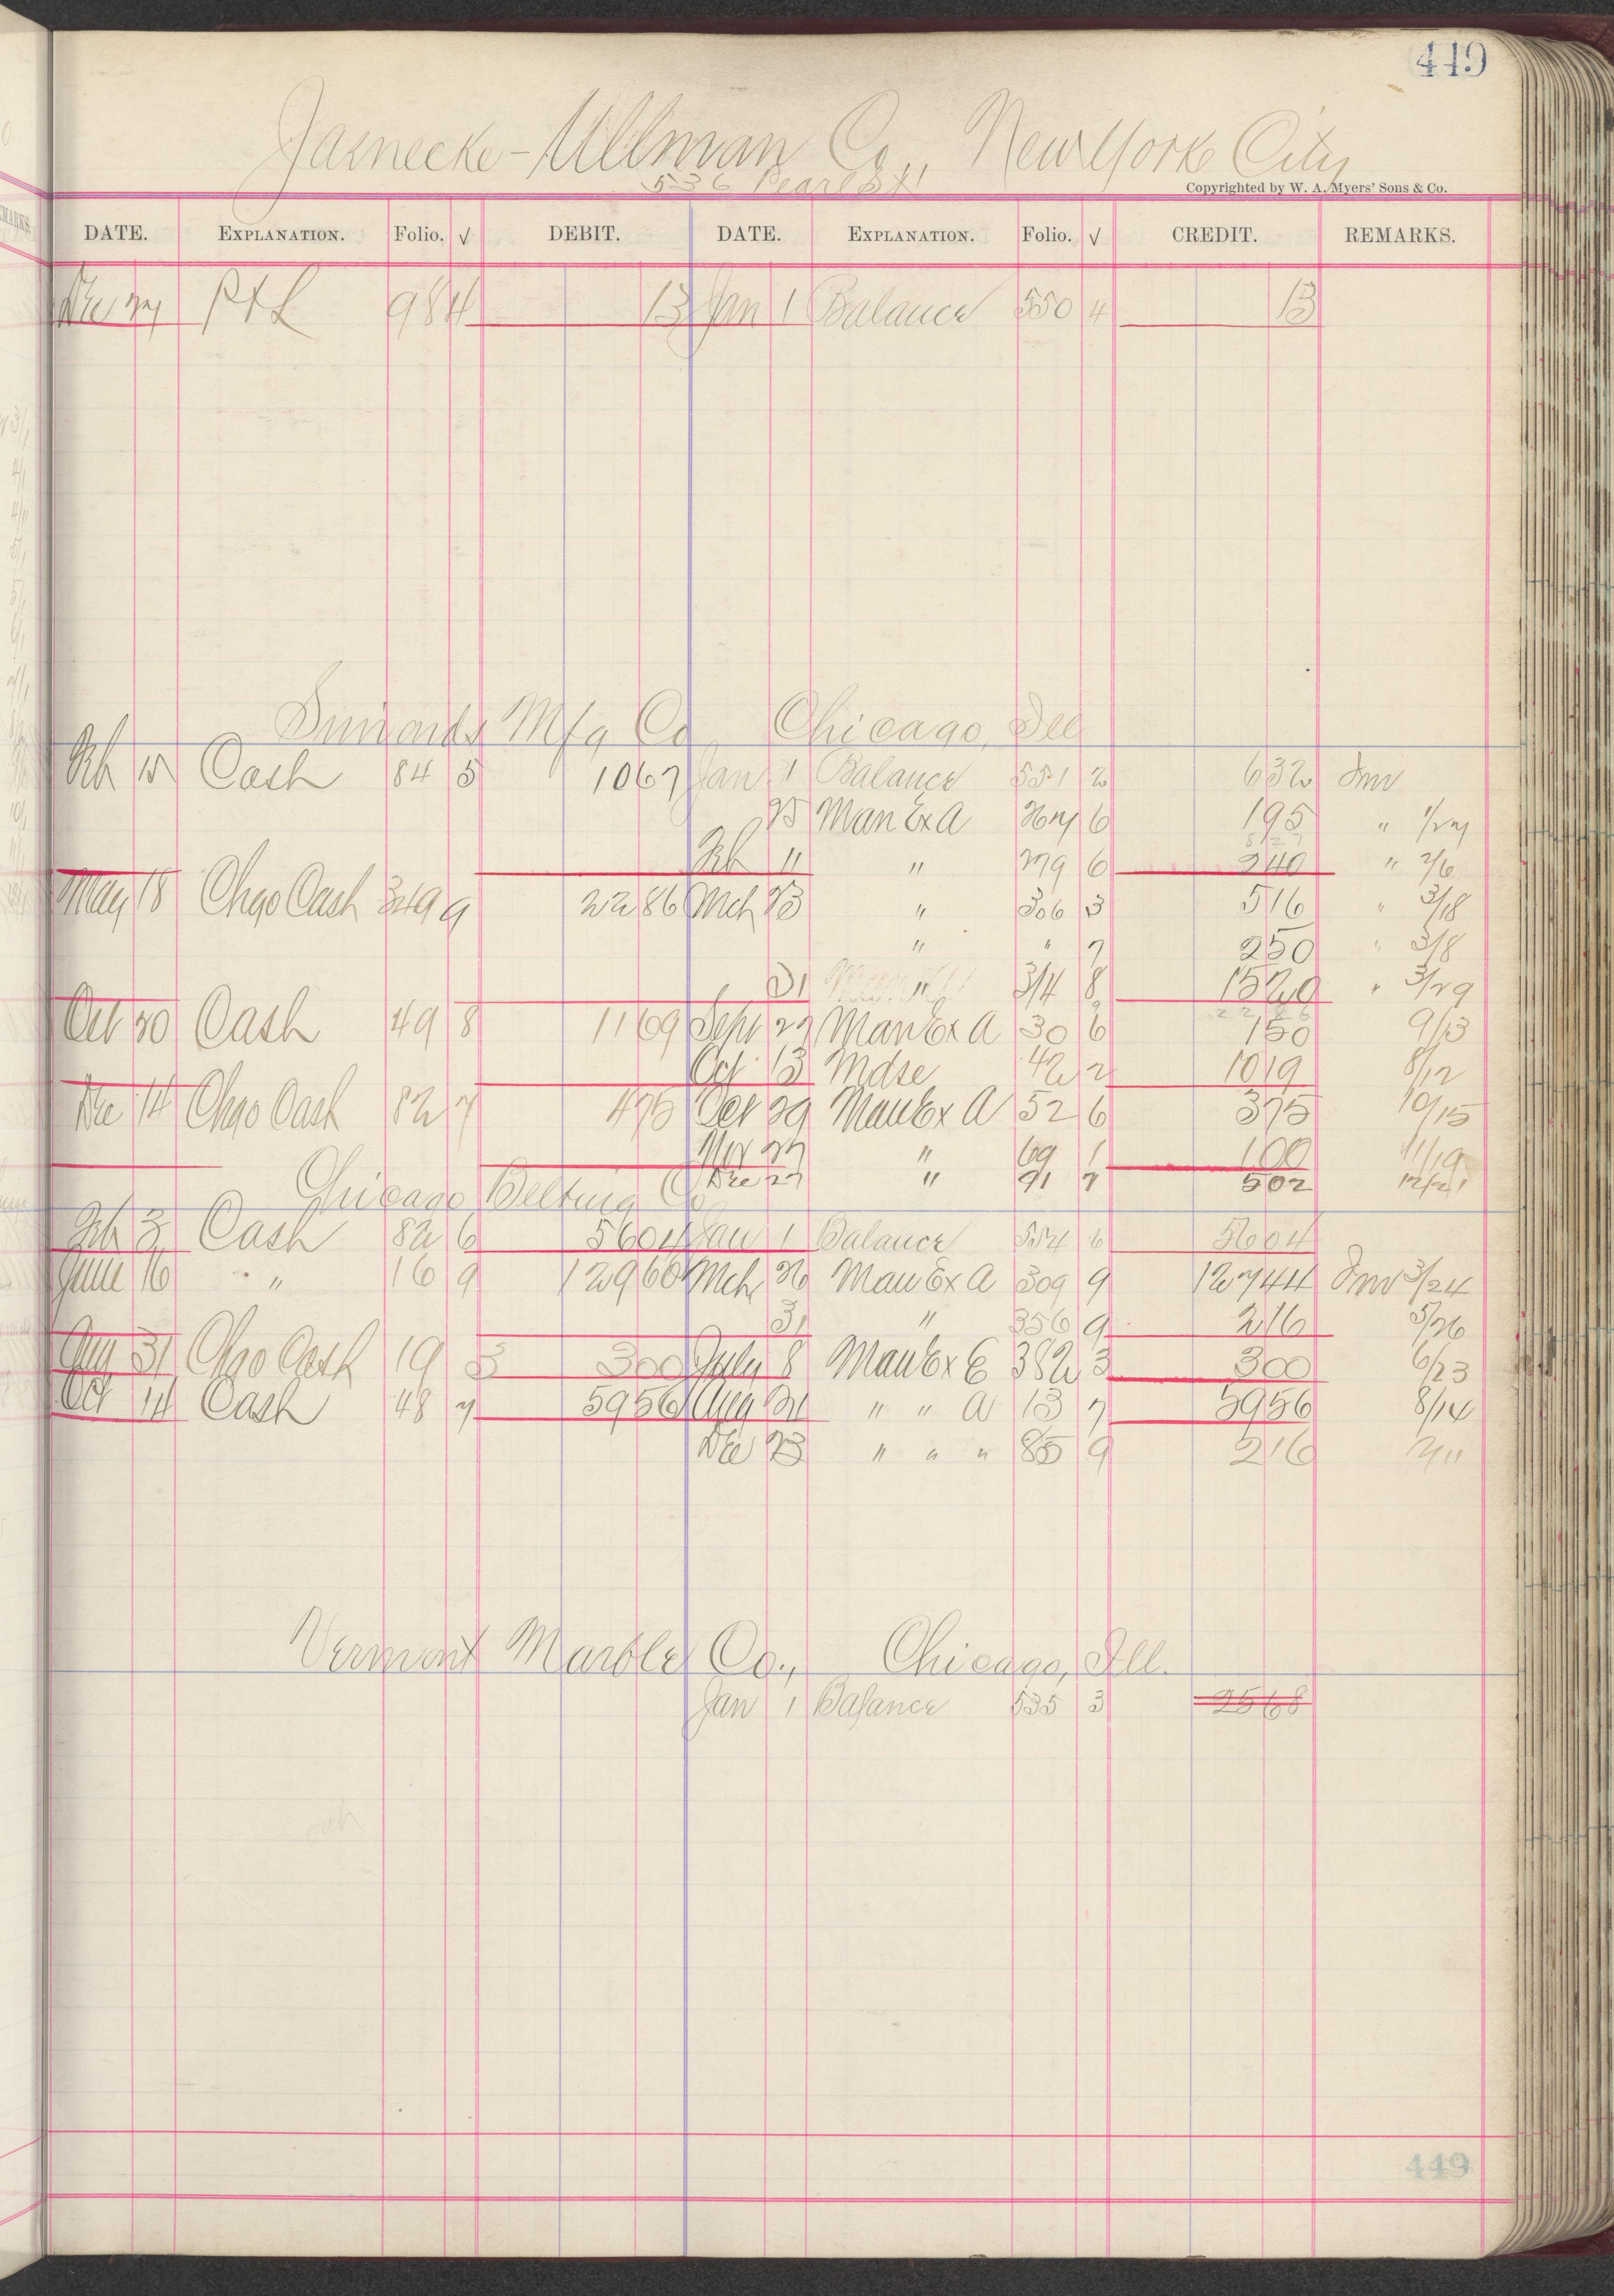 449
Jaenecke-Ullman Co., New York City
536 Pearl St
Copyrighted by W. A. Myers' Sons & Co.
DATE. EXPLANATION. Folio. √ DEBIT. DATE. EXPLANATION. Folio. √ CREDIT. REMARKS.
Dec 31 P & L 98 4 13 Jan 1 Balance 550 4 13
Mfg Co Chicago, Ill
Feb 15 Cash 84 5 1067 Jan 1 Balance 551 2 632 Inv
25 Man Ex A 6 195 " 1/27
Feb 11 " 279 6 240 " 2/6
May 18 Chgo Cash 349 9 2286 Mch 23 " 306 3 516 " 3/18
" " 7 250 " 3/8
31 " 314 8 1520 " 3/29
2286
Oct 20 Cash 49 8 1169 Sept 29 Man Ex A 30 6 150 9/13
Oct 13 Mdse 42 2 1019 8/12
Dec 14 Chgo Cash 82 7 475 Oct 29 Man Ex A 52 6 375 10/15
Nov 27 " 69 1 100 11/19
Dec 27 " 91 7 502 12/21
Chicago Belting Co
Feb 3 Cash 82 6 5604 Jan 1 Balance 554 6 5604
June 16 " 16 9 12960 Mch 26 Man Ex A 309 9 12744 Inv 3/24
31 " 356 9 216 5/26
Aug 31 Chgo Cash 19 3 300 July 8 Man Ex E 382 3 300 6/23
Oct 14 Cash 48 7 5956 Aug 31 " " A 13 7 5956 8/14
Dec 23 " " " 85 9 216
Vermont Marble Co., Chicago, Ill.
Jan 1 Balance 535 3 2568
449